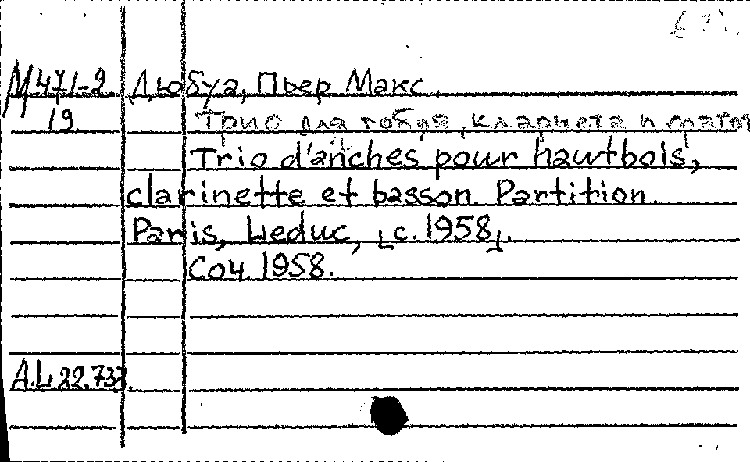 М 471-2 Дюбуа, Пьер Макс.
19 Трио для гобоя, кларнета и фагот
Trio d'anches pour hautbois,
clarinette et basson. Partition.
Paris, Leduc, [c. 1958].
Соч. 1958.
A.L. 22.733.